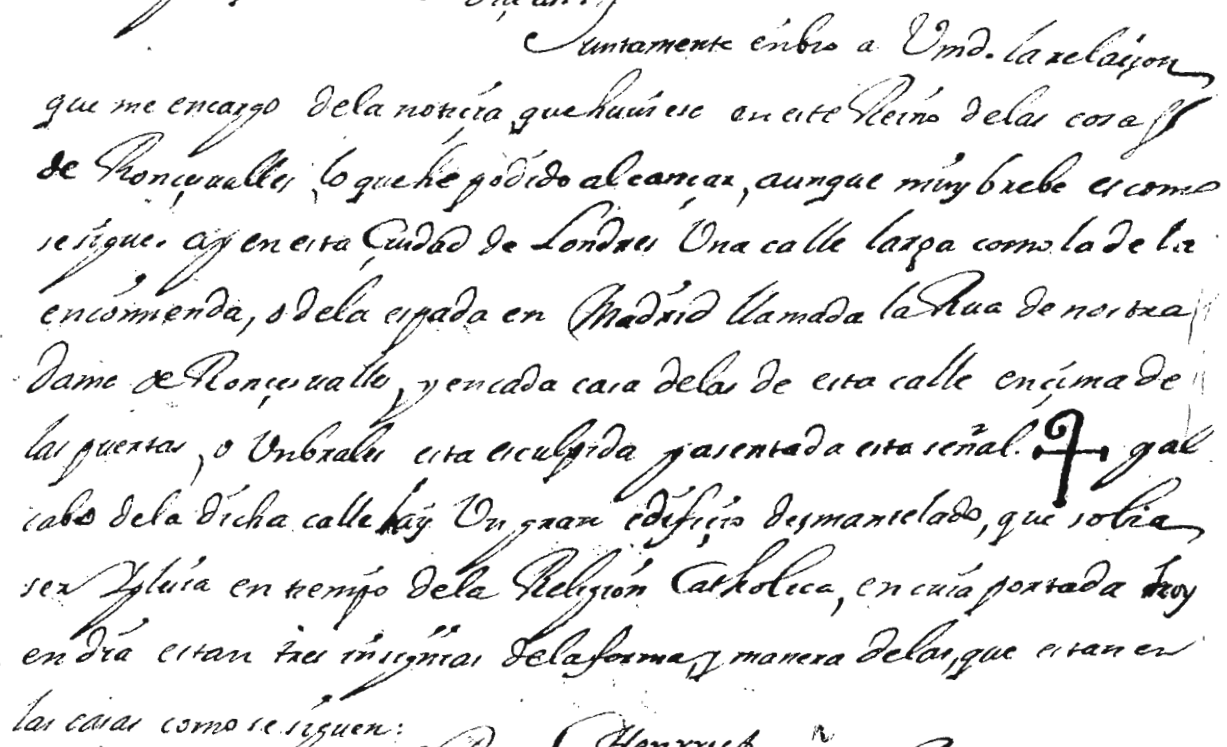 Juntamente enbio a Vmd. la relaçion
que me encargo de la notiçia que huuiese en este Reino de las cosas
de Ronçesualles, lo que he podido alcançar, aunque muy brebe es como
se sigue. ay en esta Çiudad de Londres Una calle larga como la de la
encomienda, o de la espada en Madrid llamada la Rua de nostra
dame de Ronçesualles, y en cada casa de las de esta calle ençima de
las puertas, o Unbrales esta esculpida y asentada esta señal. y al
cabo de la dicha calle hay Un gran edifiçio desmantelado, que solia
ser Yglesia en tiempo de la Religion Catholica, en cuia portada hoy
en dia estan tres insignias de la forma, y manera de las, que estan en
las casas como se siguen: